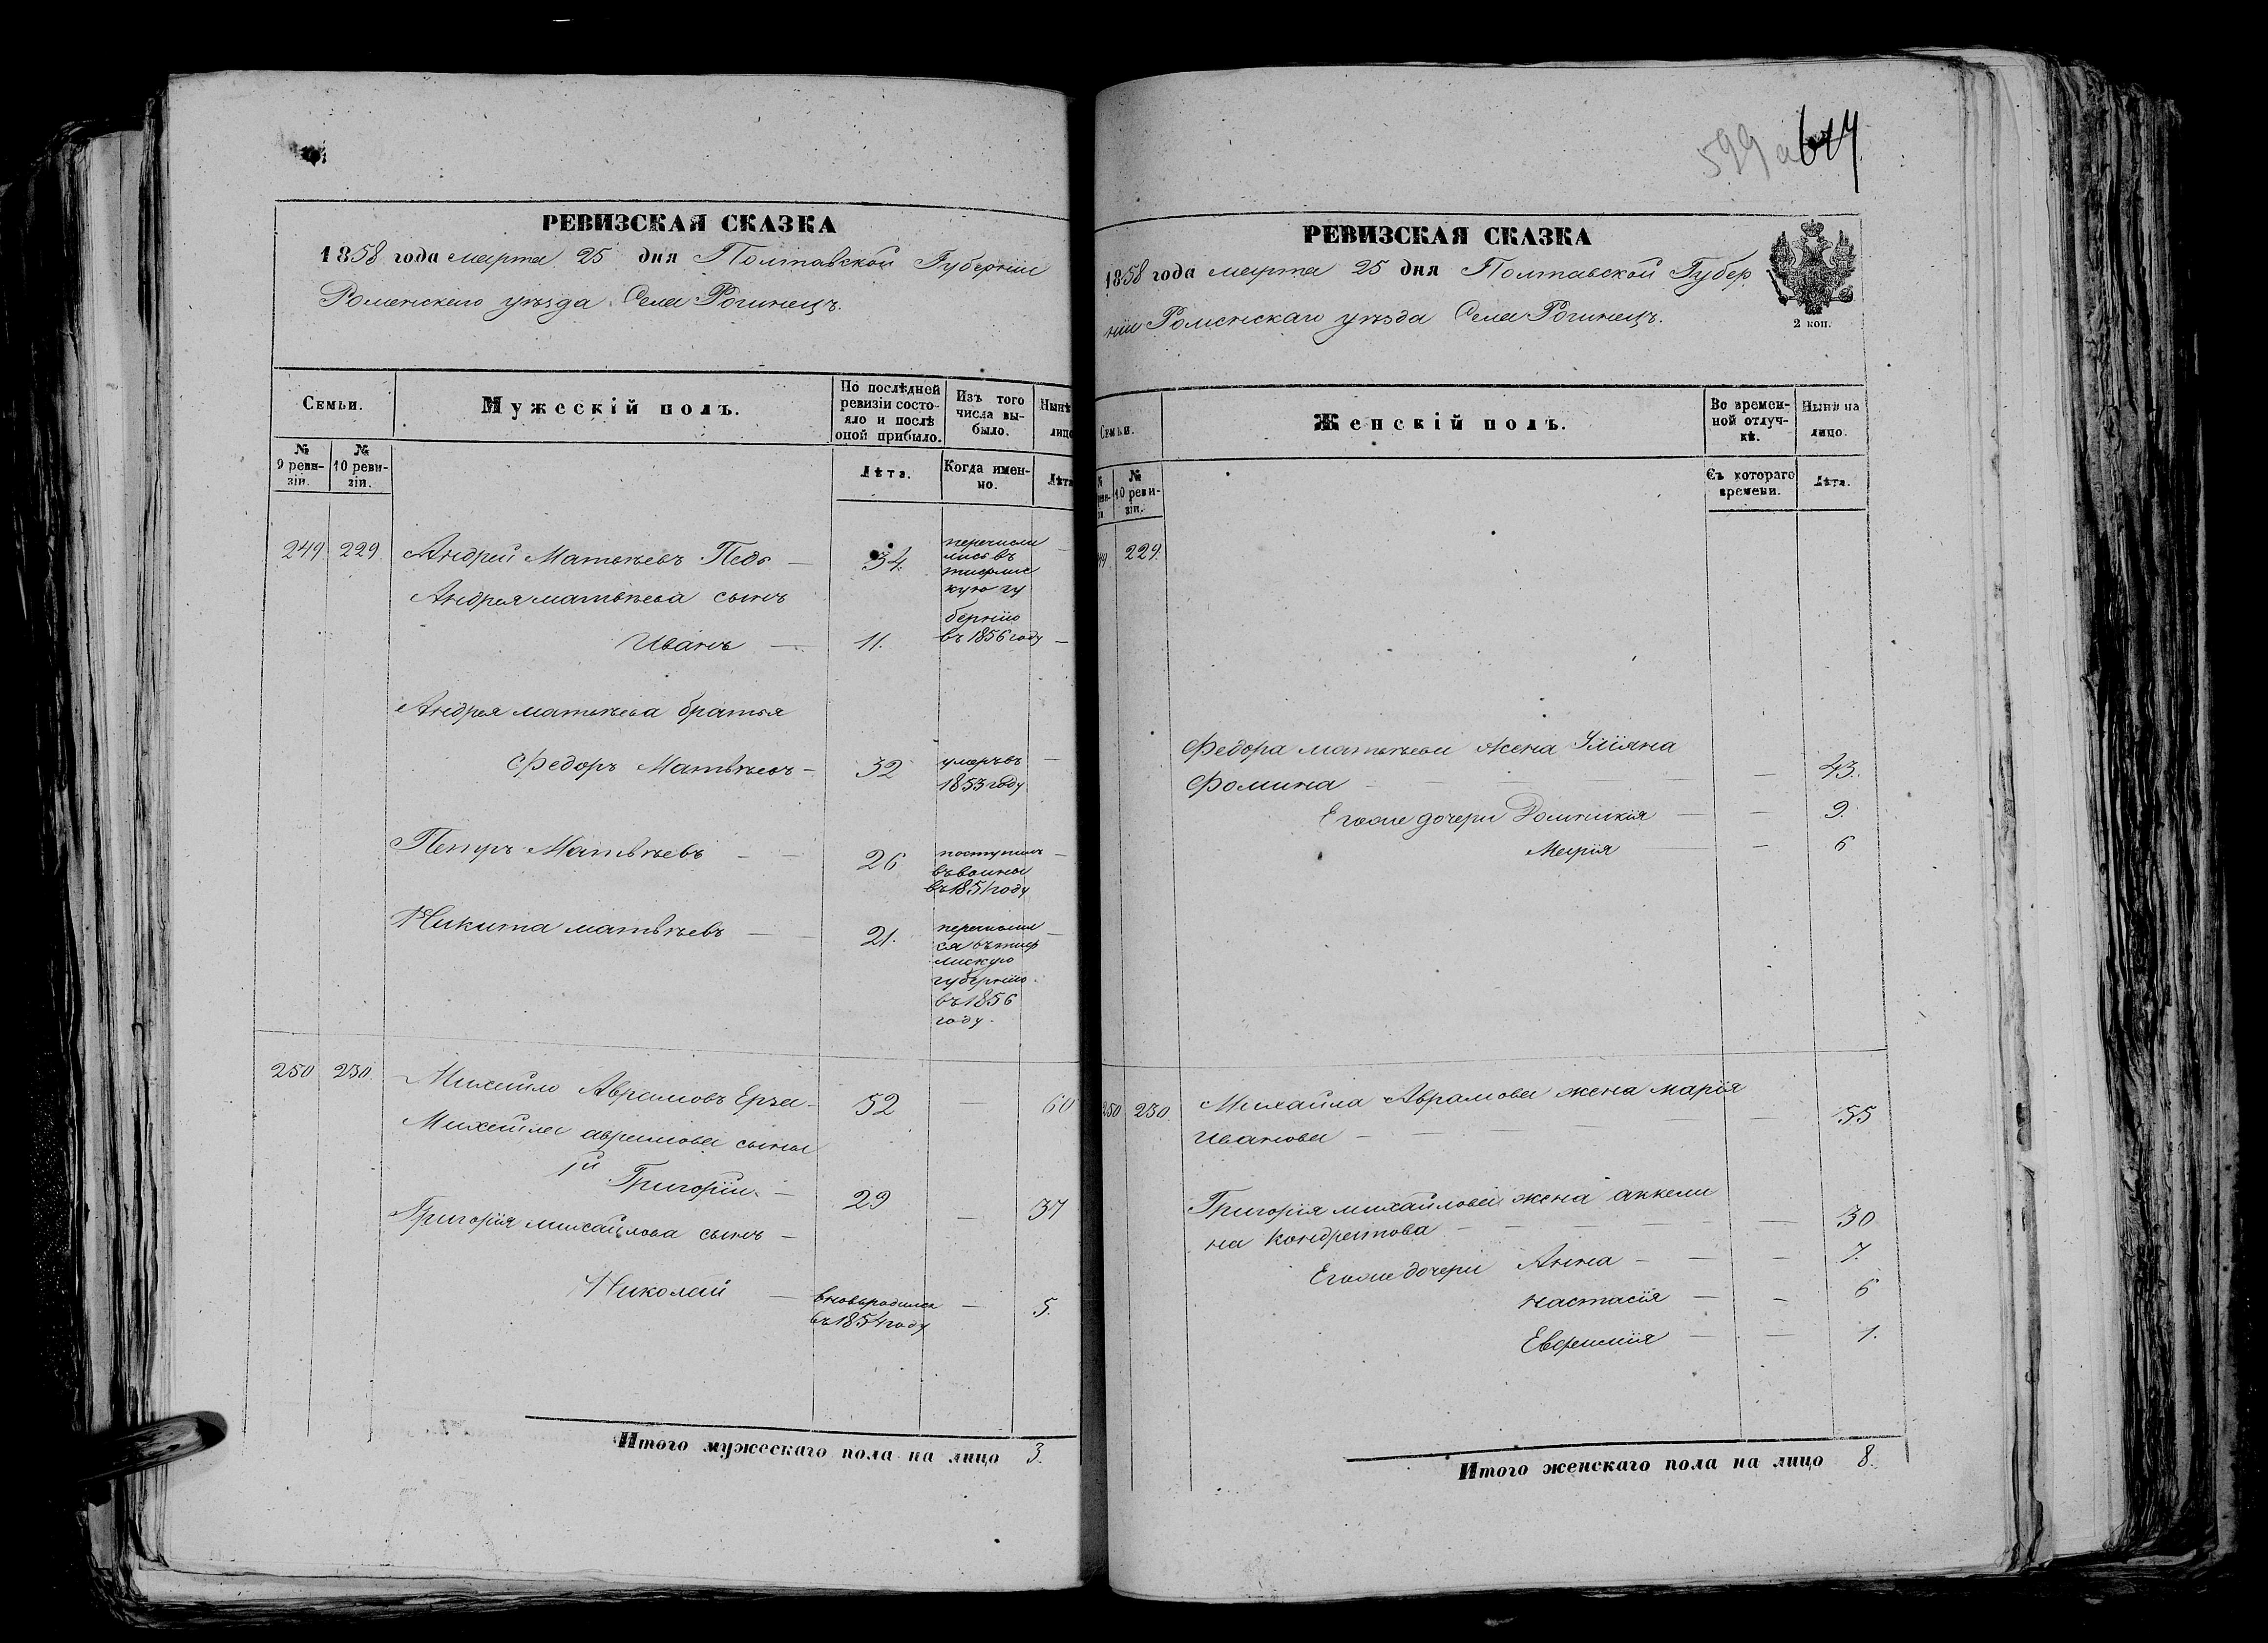 РЕВИЗСКАЯ СКАЗКА
1858 года марта 25 дня Полтавской Губерніи
Роменскаго уѣзда Села Рогинецъ.
Семьи.
Мужескій полъ.
По послѣдней ревизіи состояло и послѣ оной прибыло.
Изъ того числа выбыло.
Нынѣ
лицо
№ 9 ревизіи.
№ 10 ревизіи.
Лѣта.
Когда именно.
Лѣта
249 229 Андрей Матвѣевъ Педь — 34.
перечисли
лись въ
кую гу
бернію
въ 1856 году
Андрея матвѣева сынъ
Иванъ — 11. —
Андрея матвѣева братья
Федоръ Матвѣевъ — 32 умеръ въ —
1853 году
Петръ Матвѣевъ — — 26 поступилъ —
въ 1851 году
Никита матвѣевъ — — 21. перечислил —
ся
губернію
въ 1856
году.
250 230 Михайло Аврамовъ — 52 — 60
Михайла аврамова сыны
1й Григорій — 29 — 37
Григорія михайлова сынъ —
Николай — вновь родился — 5.
въ 1854 году
Итого мужескаго пола на лицо 3.
599 а 614
РЕВИЗСКАЯ СКАЗКА
1858 года марта 25 дня Полтавской Губер
ніи Роменскаго уѣзда Села Рогинецъ.
2 коп.
Семьи.
Женскій полъ.
Во временной отлучкѣ.
Нынѣ на лицо.
№ 10 ревизіи.
Съ котораго времени.
Лѣта.
229.
Федора матвѣева жена Уліяна
Фомина — — — — 43.
Его же дочери Домникія — — 9.
Марія — 6
250 230. Михайла Аврамова жена марія
Иванова — — — — 55
Григорія михайлова жена аккели
на Кондратова — — — — 30
Его же дочери Анна — — — 7.
настасія — — 6
Евфимія — — 1.
Итого женскаго пола на лицо 8.